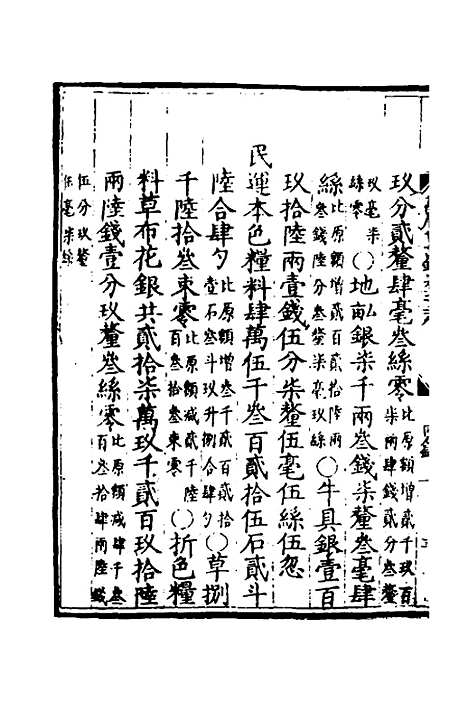 玖分貳釐肆毫叄絲零比原額增貳千玖百
柒兩肆錢貳分叄釐
玖毫柒
絲零〇地畆銀柒千兩叄錢柒釐叄毫肆
絲比原額增貳百貳拾陸兩
叄錢陸分叄釐柒毫玖絲〇牛具銀壹百
玖拾陸兩壹錢伍分柒釐伍毫伍絲伍忽
民運本色糧料肆萬伍千叄百貳拾伍石貳斗
陸合肆勺比原額增叄千貳百貳拾
壹石叄斗玖升捌合肆勺〇草捌
千陸拾叄束零比原額減貳千陸
百叄拾叄束零〇折色糧
料草布花銀共貳拾柒萬玖千貳百玖拾陸
兩陸錢壹分玖釐叄絲零比原額減肆千叄
百叄拾肆兩陸錢
伍分玖釐
伍毫柒絲